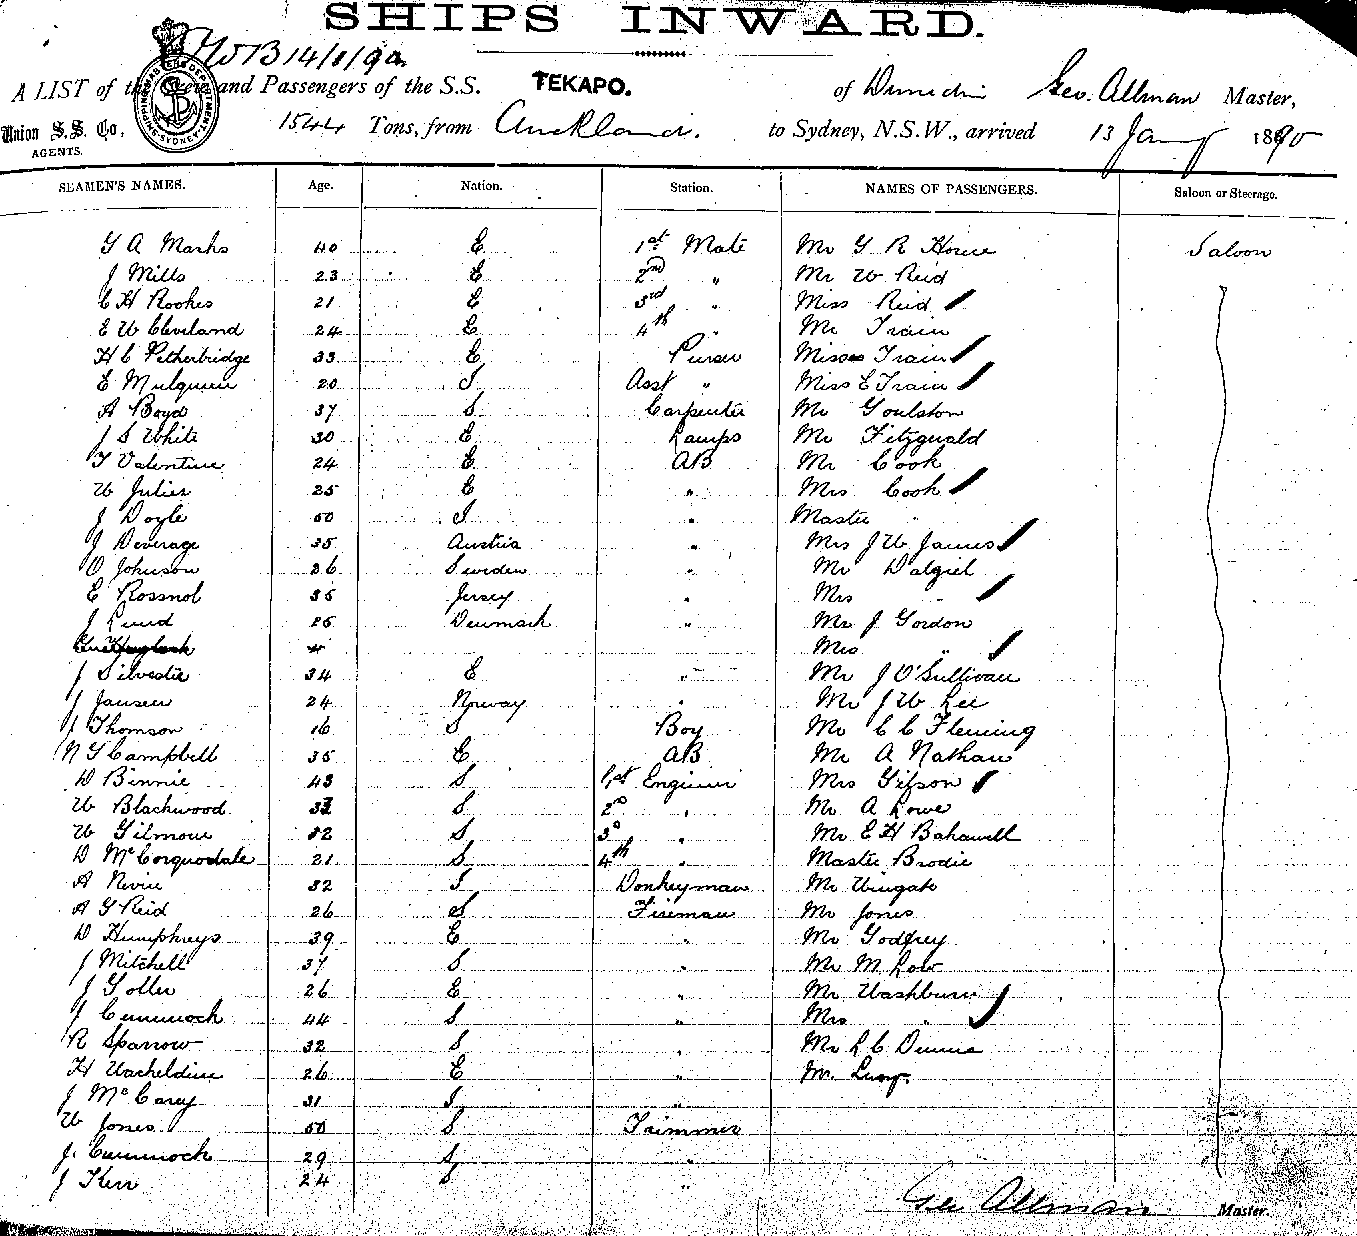 SHIPS INWARD.
14/1/90.
A LIST of the Crew and Passengers of the S.S. TEKAPO. of Dunedin Geo. Allman Master,
Union S.S. Co, AGENTS. 1544 Tons, from Auckland. to Sydney, N.S.W., arrived 13 Jany 1890
SEAMEN'S NAMES. Age. Nation. Station. NAMES OF PASSENGERS. Saloon or Steerage.
G A Marks 40 E 1st Mate Mr G R Howe Saloon
J Mills 23 E 2nd " Mr W Reid
C H Rookes 21 E 3rd " Miss Reid
E W Cleveland 24 E 4th " Mr Train
H C Petherbridge 33 E Purser Misses Train
E Mulqueen 20 I Asst " Miss E Train
A Boyd 37 S Carpenter Mr Goulston
J S White 30 E Lamps Mr Fitzgerald
T Valentine 24 E AB Mr Cook
W Julier 25 E " Mrs Cook
J Doyle 50 I " Master "
J Deverage 35 Austria " Mrs J W James
O Johnson 26 Sweden " Mr Dalziel
E Rossnol 35 Jersey " Mrs "
J Lund 25 Denmark " Mr J Gordon
Mrs "
J Silvester 34 E " Mr J O'Sullivan
J Jansen 24 Norway " Mr J W Lee
J Thomson 16 S Boy Mr C C Fleming
N G Campbell 35 E AB Mr A Nathan
D Binnie 43 S 1st Engineer Mrs Gibson
W Blackwood 33 S 2d " Mr A Lowe
W Gilmour 32 S 3d " Mr E H Bakewell
D McCorquodale 21 S 4th " Master Brodie
A Nevin 32 I Donkeyman Mr Wingate
A G Reid 26 S Fireman Mr Jones
D Humphreys 39 E " Mr Godfrey
J Mitchell 37 S " Mr M Low
J Goller 26 E " Mr Washburn
J Cummock 44 S " Mrs "
R Sparrow 32 S " Mr L C Dunne
H Vacheldine 26 E " Mr
J McCarey 31 I "
W Jones 50 S Trimmer
J. Cummock 29 S "
J Kerr 24 S "
Geo Allman Master.